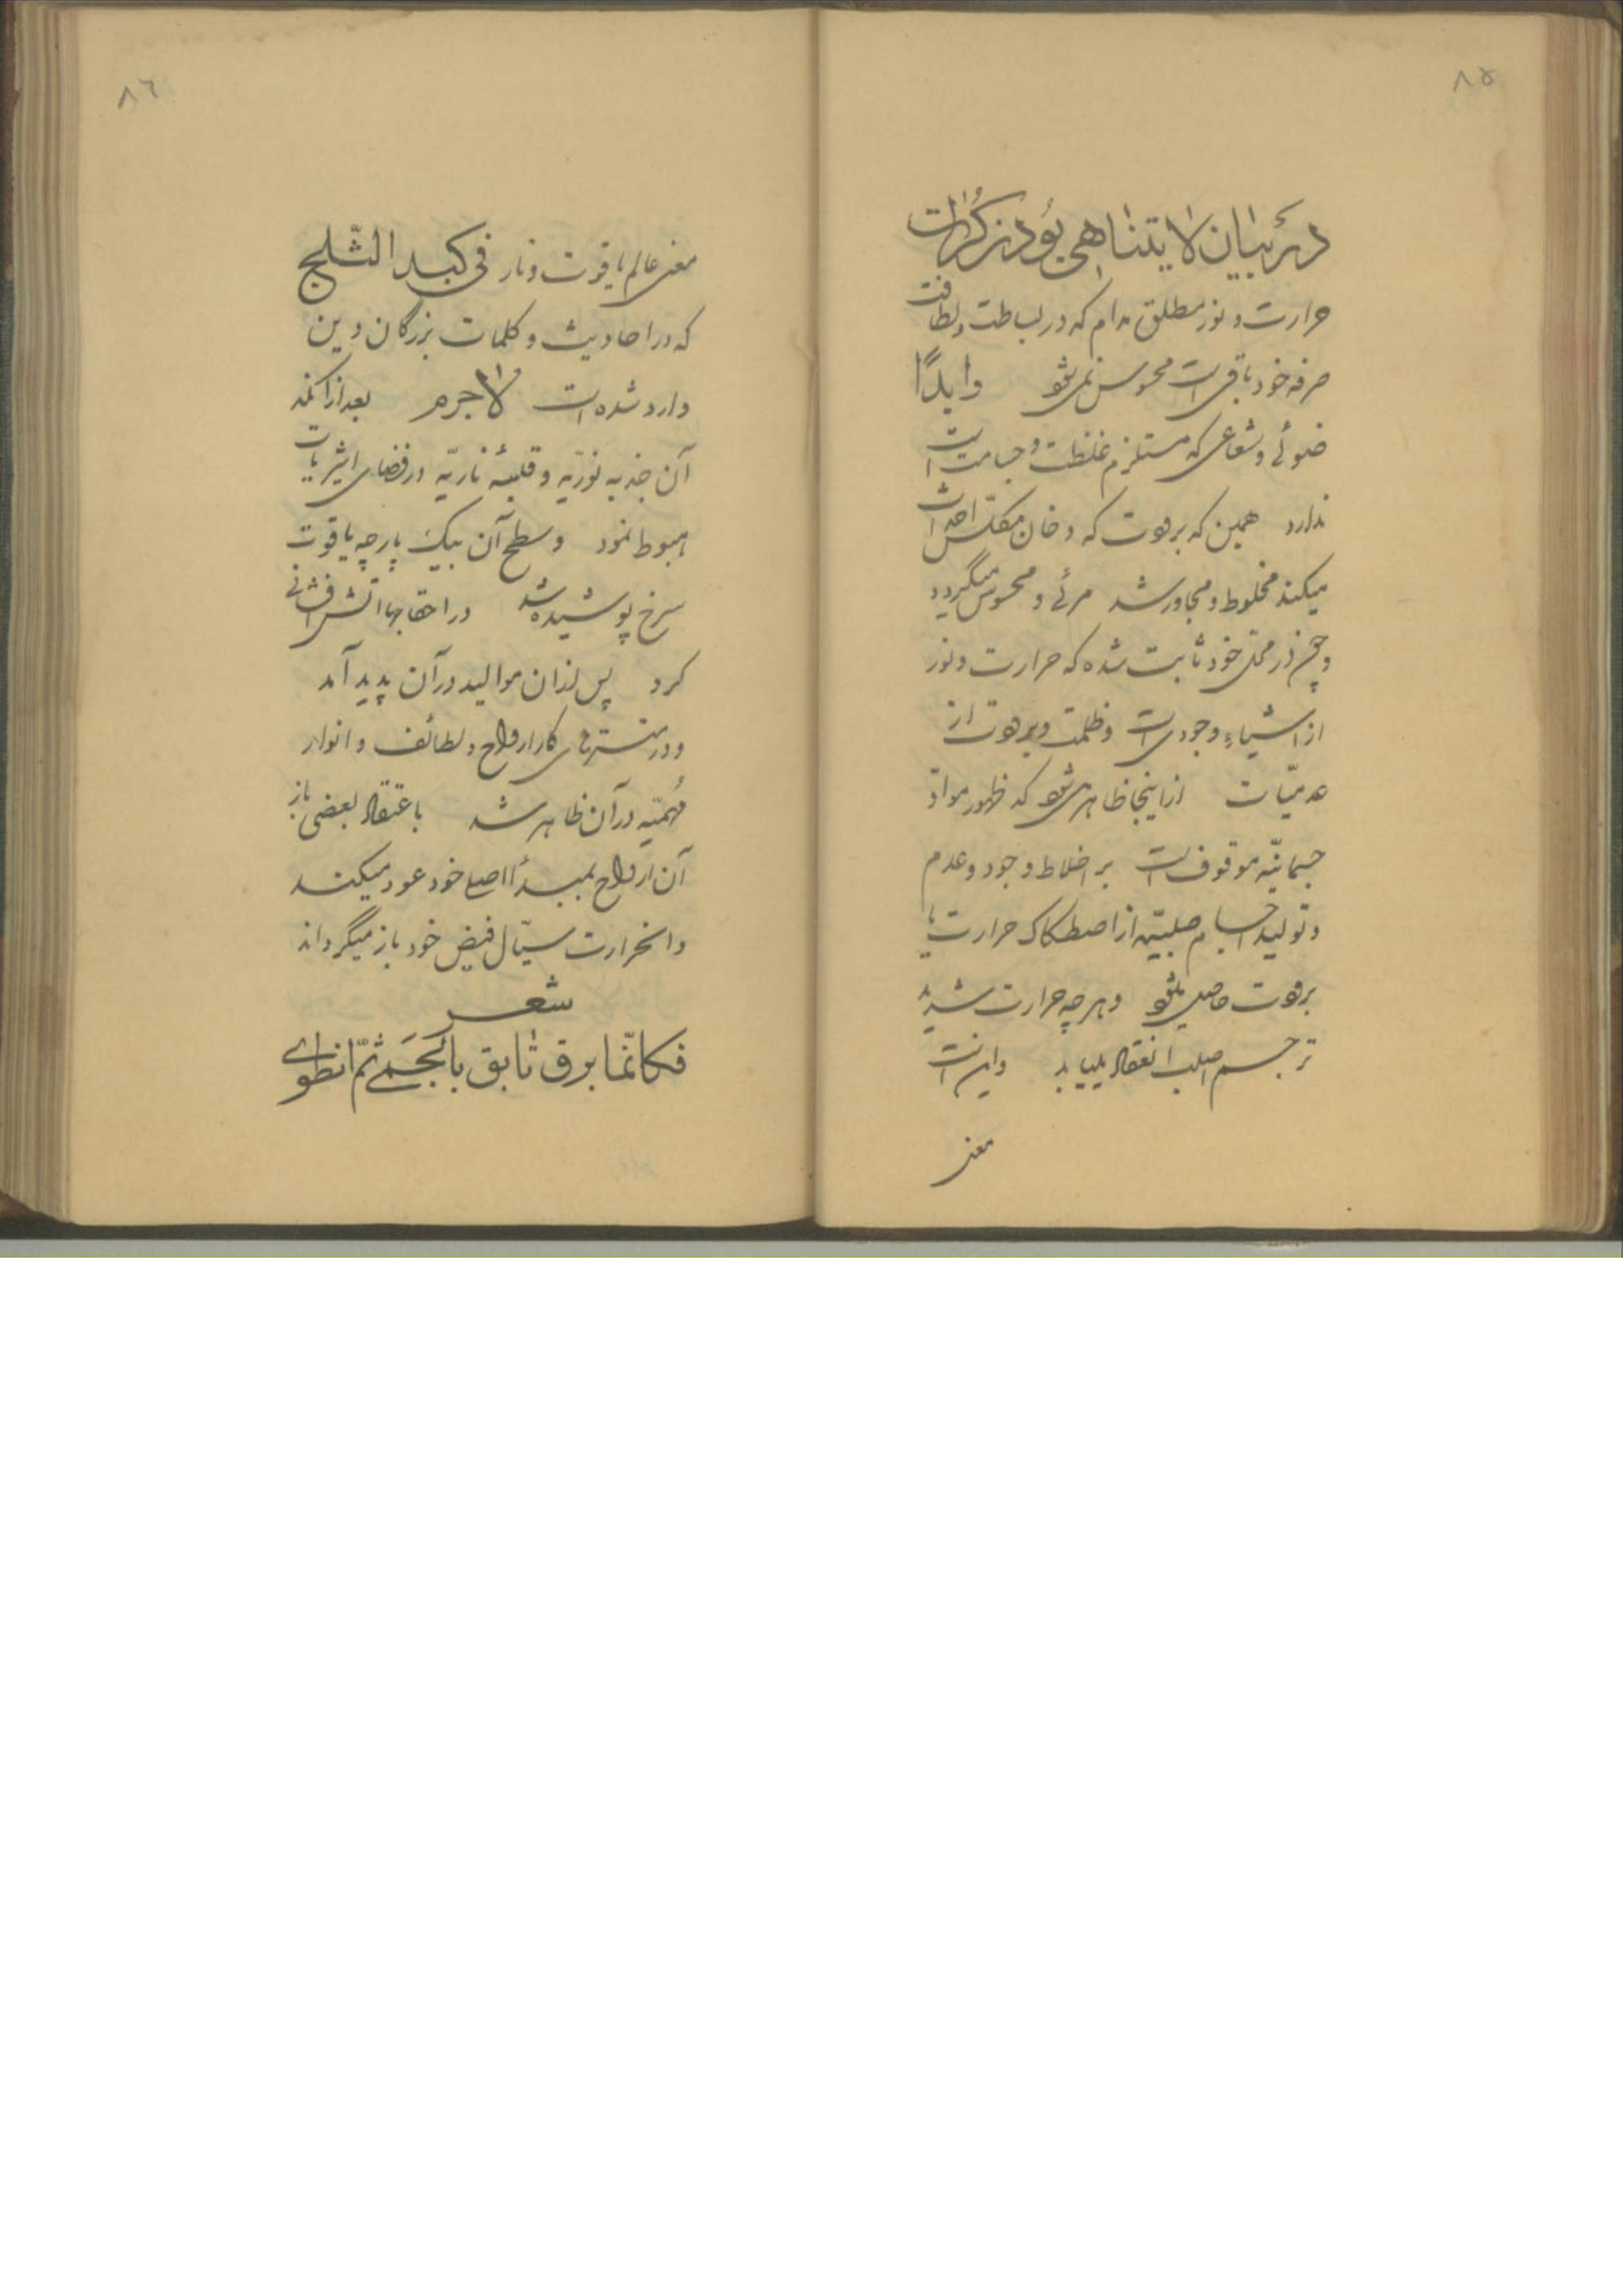 ٨٥
در بیان لایتناهی بودن کرات
حرارت و نور مطلق مادام که در بساطت و لطافت
صرفه خود باقی است محسوس نمی‌شود وابداً
ضوئی و شعاعی که مستلزم غلظت و جسامت است
ندارد همین که برودت که دخان متکاثف احداث
میکند مخلوط و مجاور شد مرئی و محسوس میگردد
و چون در محل خود ثابت شده که حرارت و نور
از اشیاء وجودی است و ظلمت و برودت از
عدمیّات از اینجا ظاهر می‌شود که ظهور موادّ
جسمانیّه موقوف است بر اختلاط وجود و عدم
و تولید اجسام صلبیّه از اصطکاک حرارت با
برودت حاصل میشود و هرچه حرارت شدید
تر جسم اصلب انعقاد مییابد و این است
معنی
٨٦
معنی عالم یاقوت و نار فی کبد الثّلج
که در احادیث و کلمات بزرگان دین
وارد شده است لاجرم بعد از آنکه
آن جذبه نوریّه و قبسهٔ ناریّه در فضای اثیریات
هبوط نمود و سطح آن بیک پارچه یاقوت
سرخ پوشیده شد در احقابها آتش افشانی
کرد پس از آن موالید در آن پدید آمد
و در منتهی کار ارواح و لطائف و انوار
مهمّیه در آن ظاهر شد باعتقاد بعضی باز
آن ارواح بمبدأ اصلی خود عود میکند
و آنحرارت سیّال فیض خود باز میگرداند
شعر
فکانّما برق تابق بالحمی ثمّ انطوی